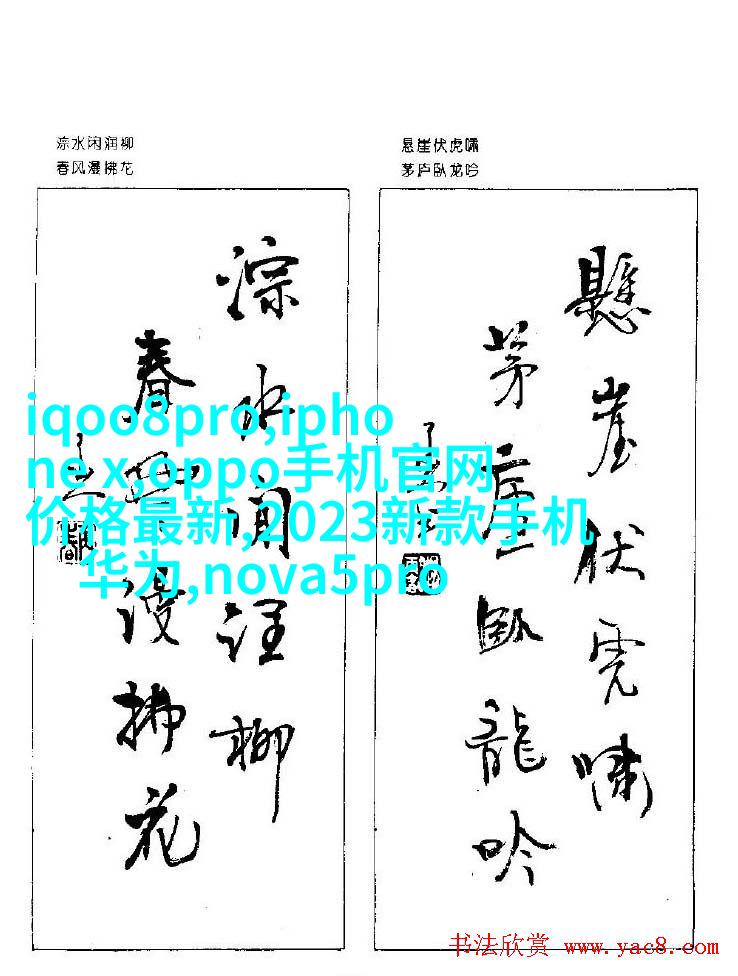 淙水闲润柳
春风漫拂花
悬崖伏虎啸
茅庐卧龙吟
淙水闲润柳
春风漫拂花
懸崖伏虎啸
茅庐卧龍吟
iqoo8pro,ipho
ne x,oppo手机官网
价格最新,2023新款手机
华为,nova5pro
书法欣赏 www.yac8.com